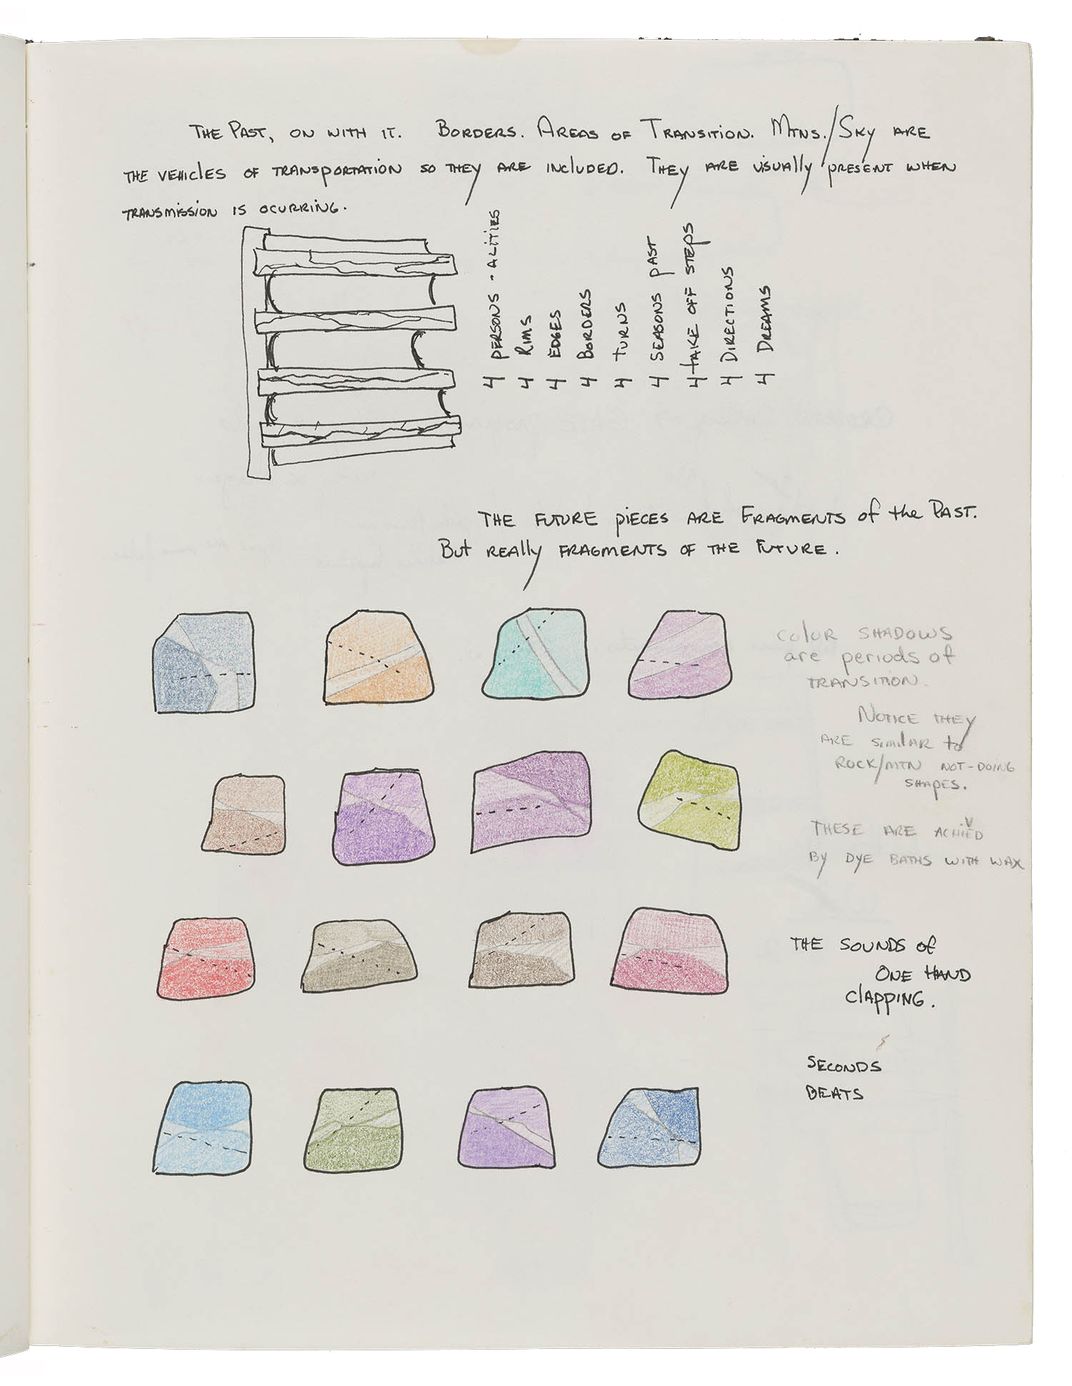 THE PAST, ON WITH IT. BORDERS. AREAS OF TRANSITION. MTNS./SKY ARE
THE VEHICLES OF TRANSPORTATION SO THEY ARE INCLUDED. THEY ARE USUALLY PRESENT WHEN
TRANSMISSION IS OCURRING.
4 PERSONS-ALITIES
4 RIMS
4 EDGES
4 BORDERS
4 TURNS
4 SEASONS PAST
4 TAKE OFF STEPS
4 DIRECTIONS
4 DREAMS
THE FUTURE PIECES ARE FRAGMENTS of the PAST.
But REALLY FRAGMENTS OF THE FUTURE.
COLOR SHADOWS
are periods of
TRANSITION.
NOTICE THEY
ARE SIMILAR to
ROCK/MTN NOT-DOING
SHAPES.
THESE ARE ACHIEVD
BY DYE BATHS WITH WAX
THE SOUNDS of
ONE HAND
CLAPPING.
SECONDS
BEATS